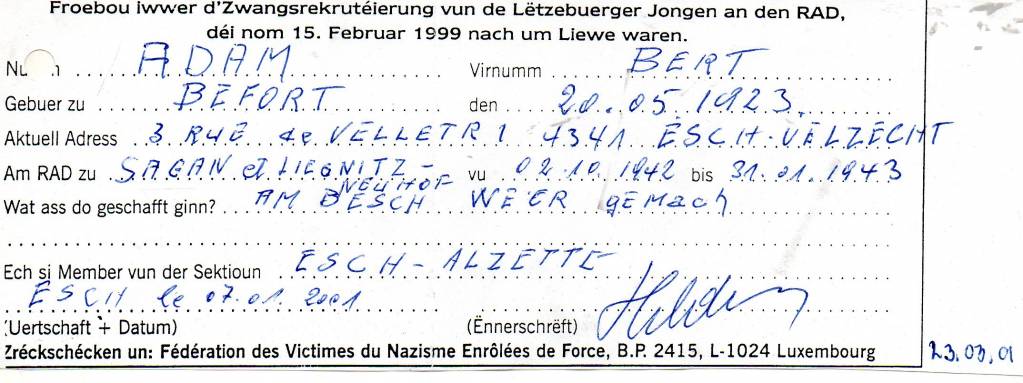 Froebou iwwer d'Zwangsrekrutéierung vun de Lëtzebuerger Jongen an den RAD,
déi nom 15. Februar 1999 nach um Liewe waren.
ADAM Virnumm BERT
Gebuer zu BEFORT den 20.05.1923
Aktuell Adress 3 RUE de VELLETRI 4341 ESCH-UELZECHT
Am RAD zu SAGAN et LIEGNITZ- vu 02.10.1942 bis 31.01.1943
NEUHOF
Wat ass do geschafft ginn? AM BESCH WEER gemach
Ech si Member vun der Sektioun ESCH-ALZETTE
ESCH le 07.01.2001
(Uertschaft + Datum) (Ënnerschrëft)
Zréckschécken un: Fédération des Victimes du Nazisme Enrôlées de Force, B.P. 2415, L-1024 Luxembourg
23.03.01